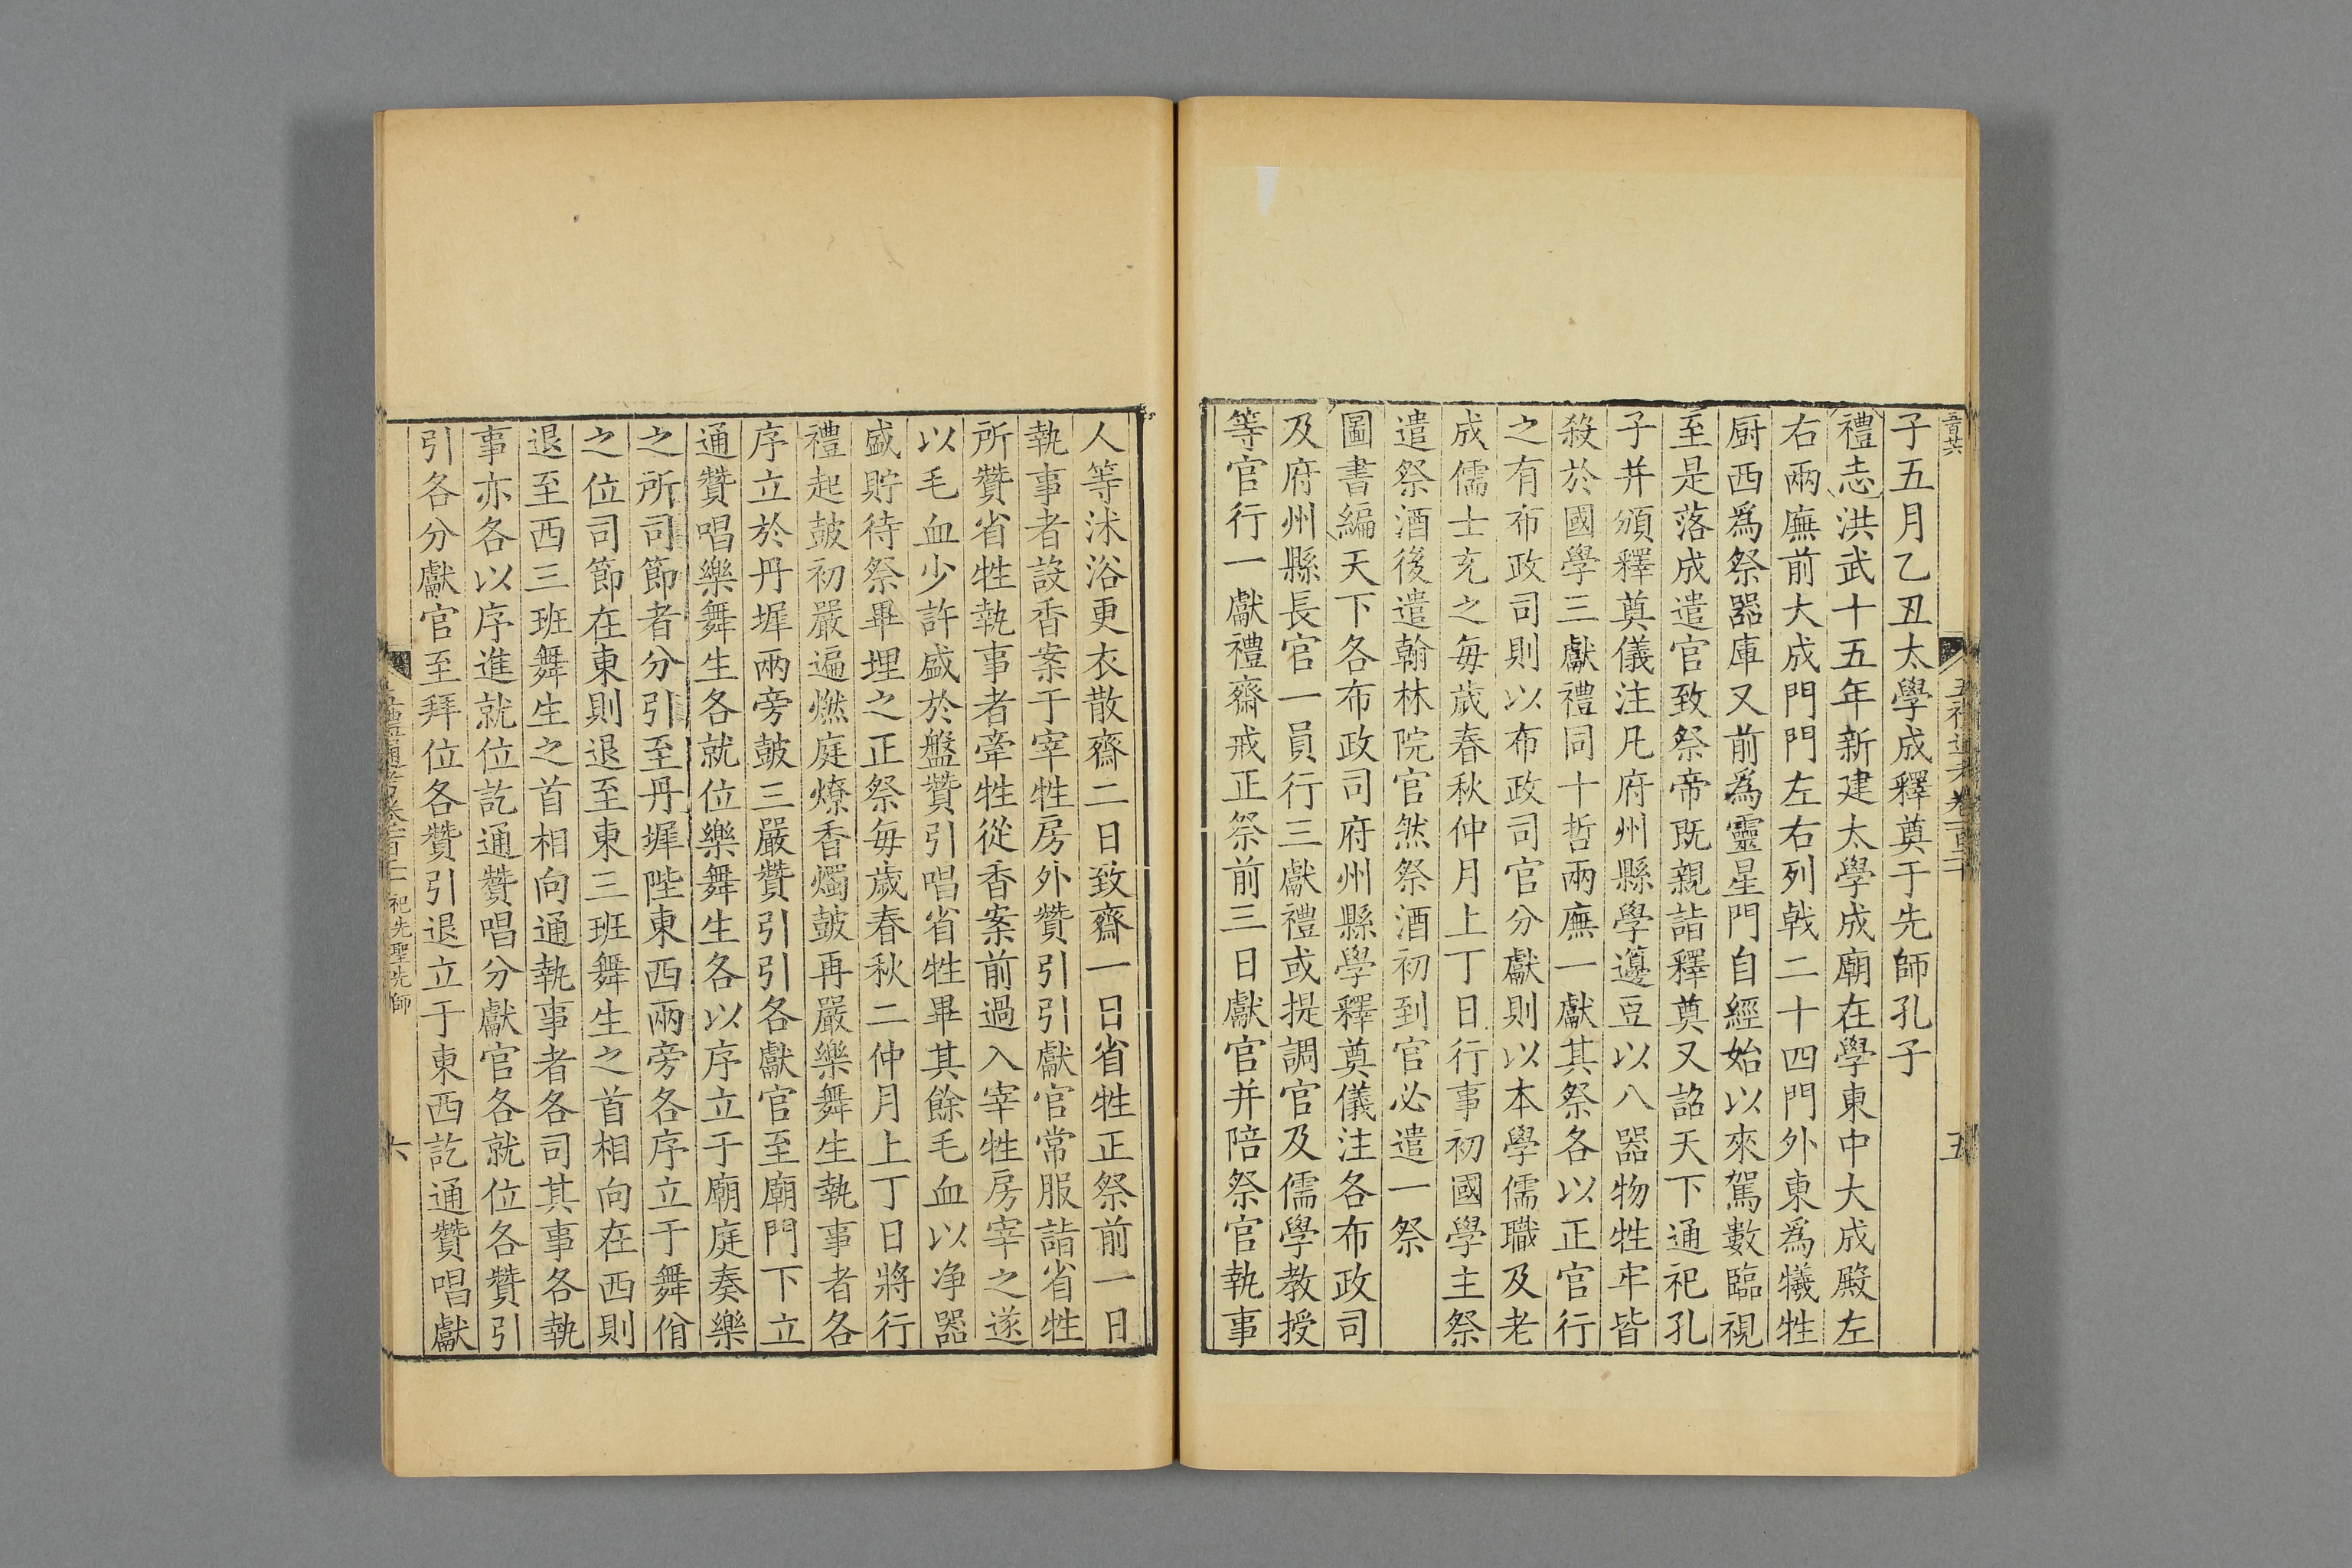 子五月乙丑太學成釋奠于先師孔子
禮志洪武十五年新建太學成廟在學東中大成殿左
右兩廡前大成門門左右列戟二十四門外東爲犧牲
厨西爲祭器庫又前爲靈星門自經始以來駕數臨視
至是落成遣官致祭帝既親詣釋奠又詔天下通祀孔
子并頒釋奠儀注凡府州縣學籩豆以八器物牲牢皆
殺於國學三獻禮同十哲兩廡一獻其祭各以正官行
之有布政司則以布政司官分獻則以本學儒職及老
成儒士充之每歲春秋仲月上丁日行事初國學主祭
遣祭酒後遣翰林院官然祭酒初到官必遣一祭
圖書編天下各布政司府州縣學釋奠儀注各布政司
及府州縣長官一員行三獻禮或提調官及儒學教授
等官行一獻禮齋戒正祭前三日獻官并陪祭官執事
人等沐浴更衣散齋二日致齋一日省牲正祭前一日
執事者設香案于宰牲房外贊引引獻官常服詣省牲
所贊省牲執事者牽牲從香案前過入宰牲房宰之遂
以毛血少許盛於盤贊引唱省牲畢其餘毛血以净器
盛貯待祭畢埋之正祭每歲春秋二仲月上丁日將行
禮起鼓初嚴遍燃庭燎香燭鼓再嚴樂舞生執事者各
序立於丹墀兩旁鼓三嚴贊引引各獻官至廟門下立
通贊唱樂舞生各就位樂舞生各以序立于廟庭奏樂
之所司節者分引至丹墀陛東西兩旁各序立于舞佾
之位司節在東則退至東三班舞生之首相向在西則
退至西三班舞生之首相向通執事者各司其事各執
事亦各以序進就位訖通贊唱分獻官各就位各贊引
引各分獻官至拜位各贊引退立于東西訖通贊唱獻
五禮通考卷一百二十 祀先聖先師
六